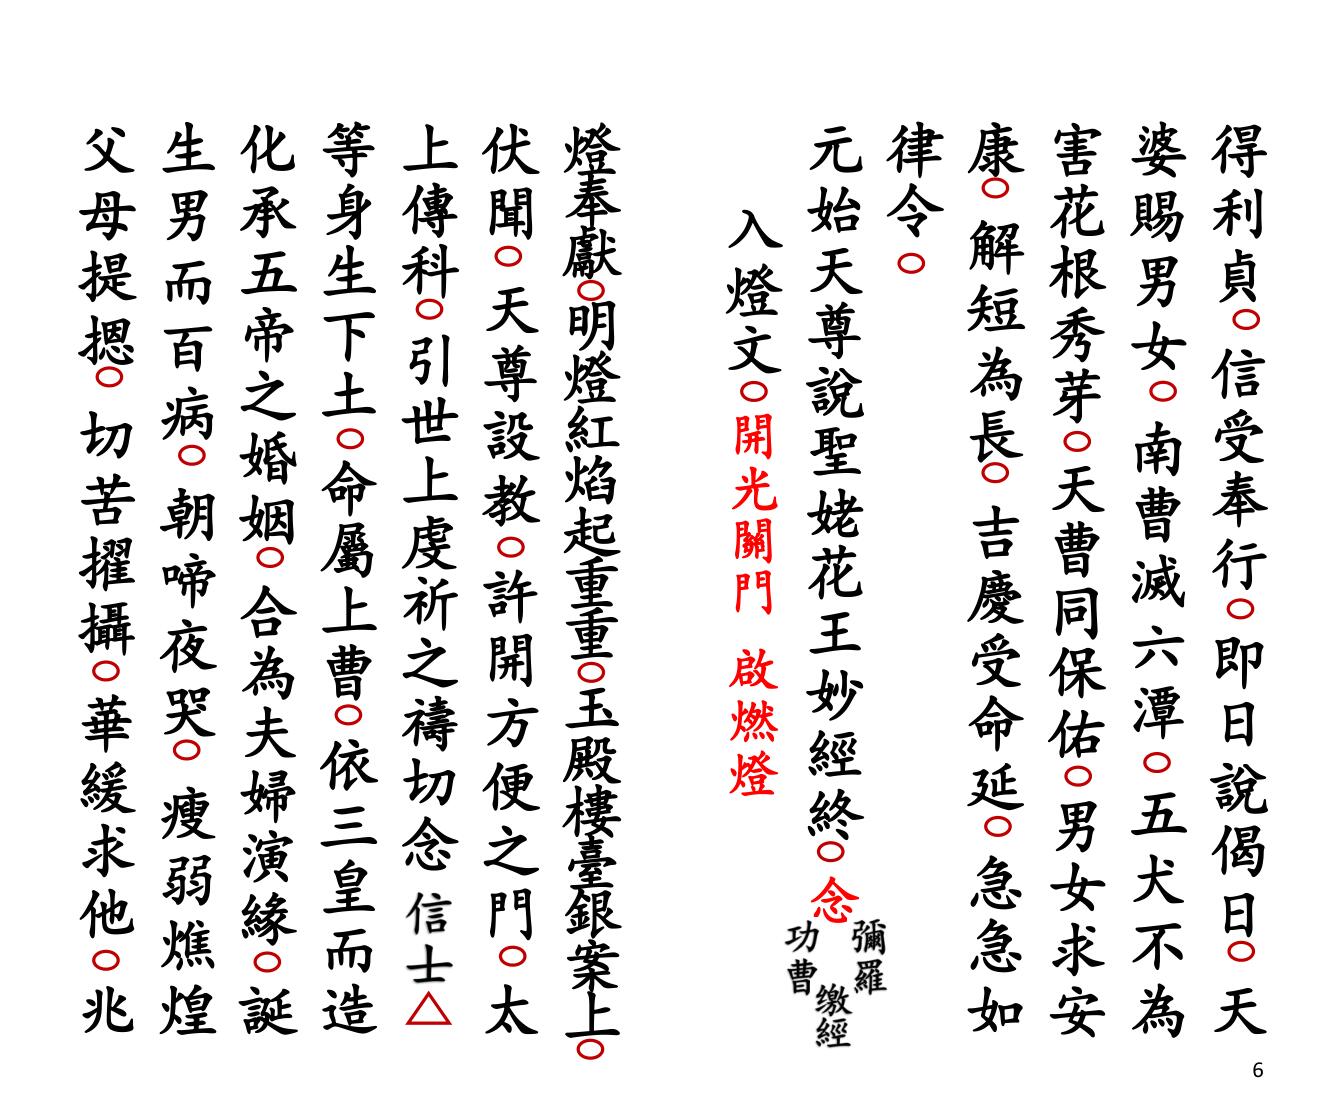 得利貞○信受奉行○即日說偈日○天
婆賜男女○南曹滅六潭○五犬不為
害花根秀芽○天曹同保佑○男女求安
康○解短為長○吉慶受命延○急急如
律令○
元始天尊說聖姥花王妙經終○念
彌羅
功曹
缴經
入燈文○開光關門 啟燃燈
燈奉獻○明燈紅焰起重重○玉殿樓臺銀案上○
伏聞○天尊設教○許開方便之門○太
上傳科○引世上虔祈之禱切念信士△
等身生下土○命屬上曹○依三皇而造
化承五帝之婚姻○合為夫婦演緣○誕
生男而百病○朝啼夜哭○瘦弱燋煌
父母提摁○切苦擢攝○華緩求他○兆
6